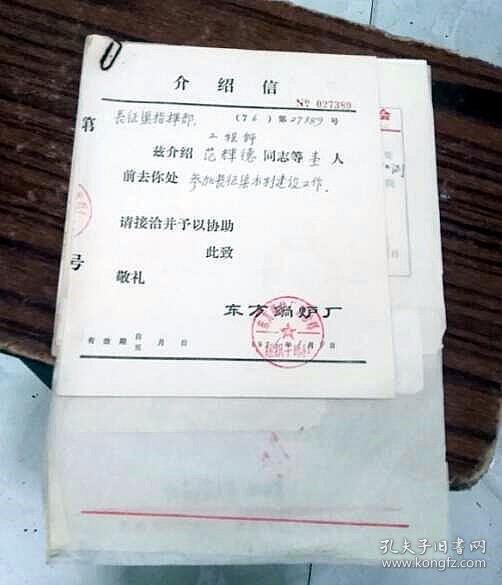 介绍信
№ 027389
長征渠指挥部
(76)第27389号
工程師
兹介绍 范辉德 同志等 壹 人
前去你处 参加長征渠水利建设工作.
请接洽并予以协助
此致
敬礼
东方锅炉厂
有效期自 月 日
至
第
号
会
孔夫子旧书网
www.kongfz.com